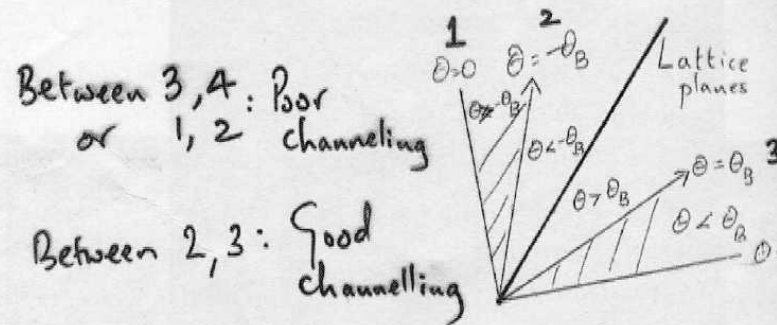 Between 3,4: Poor
or 1,2 channeling
Between 2,3: Good
channelling
1
θ=0
2
θ=-θB
Lattice
planes
θ<-θB
θ>θB
θ=θB 3
θ<θB
θ